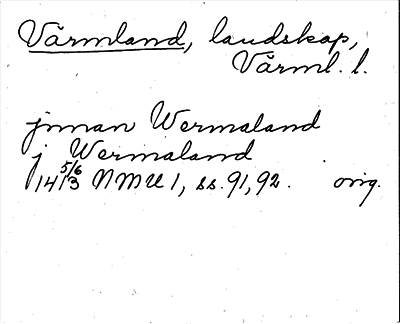 Värmland, landskap,
Värml. l.
jnnan Wermaland
j Wermaland
14 5/6 13 NMU 1, ss. 91, 92. orig.